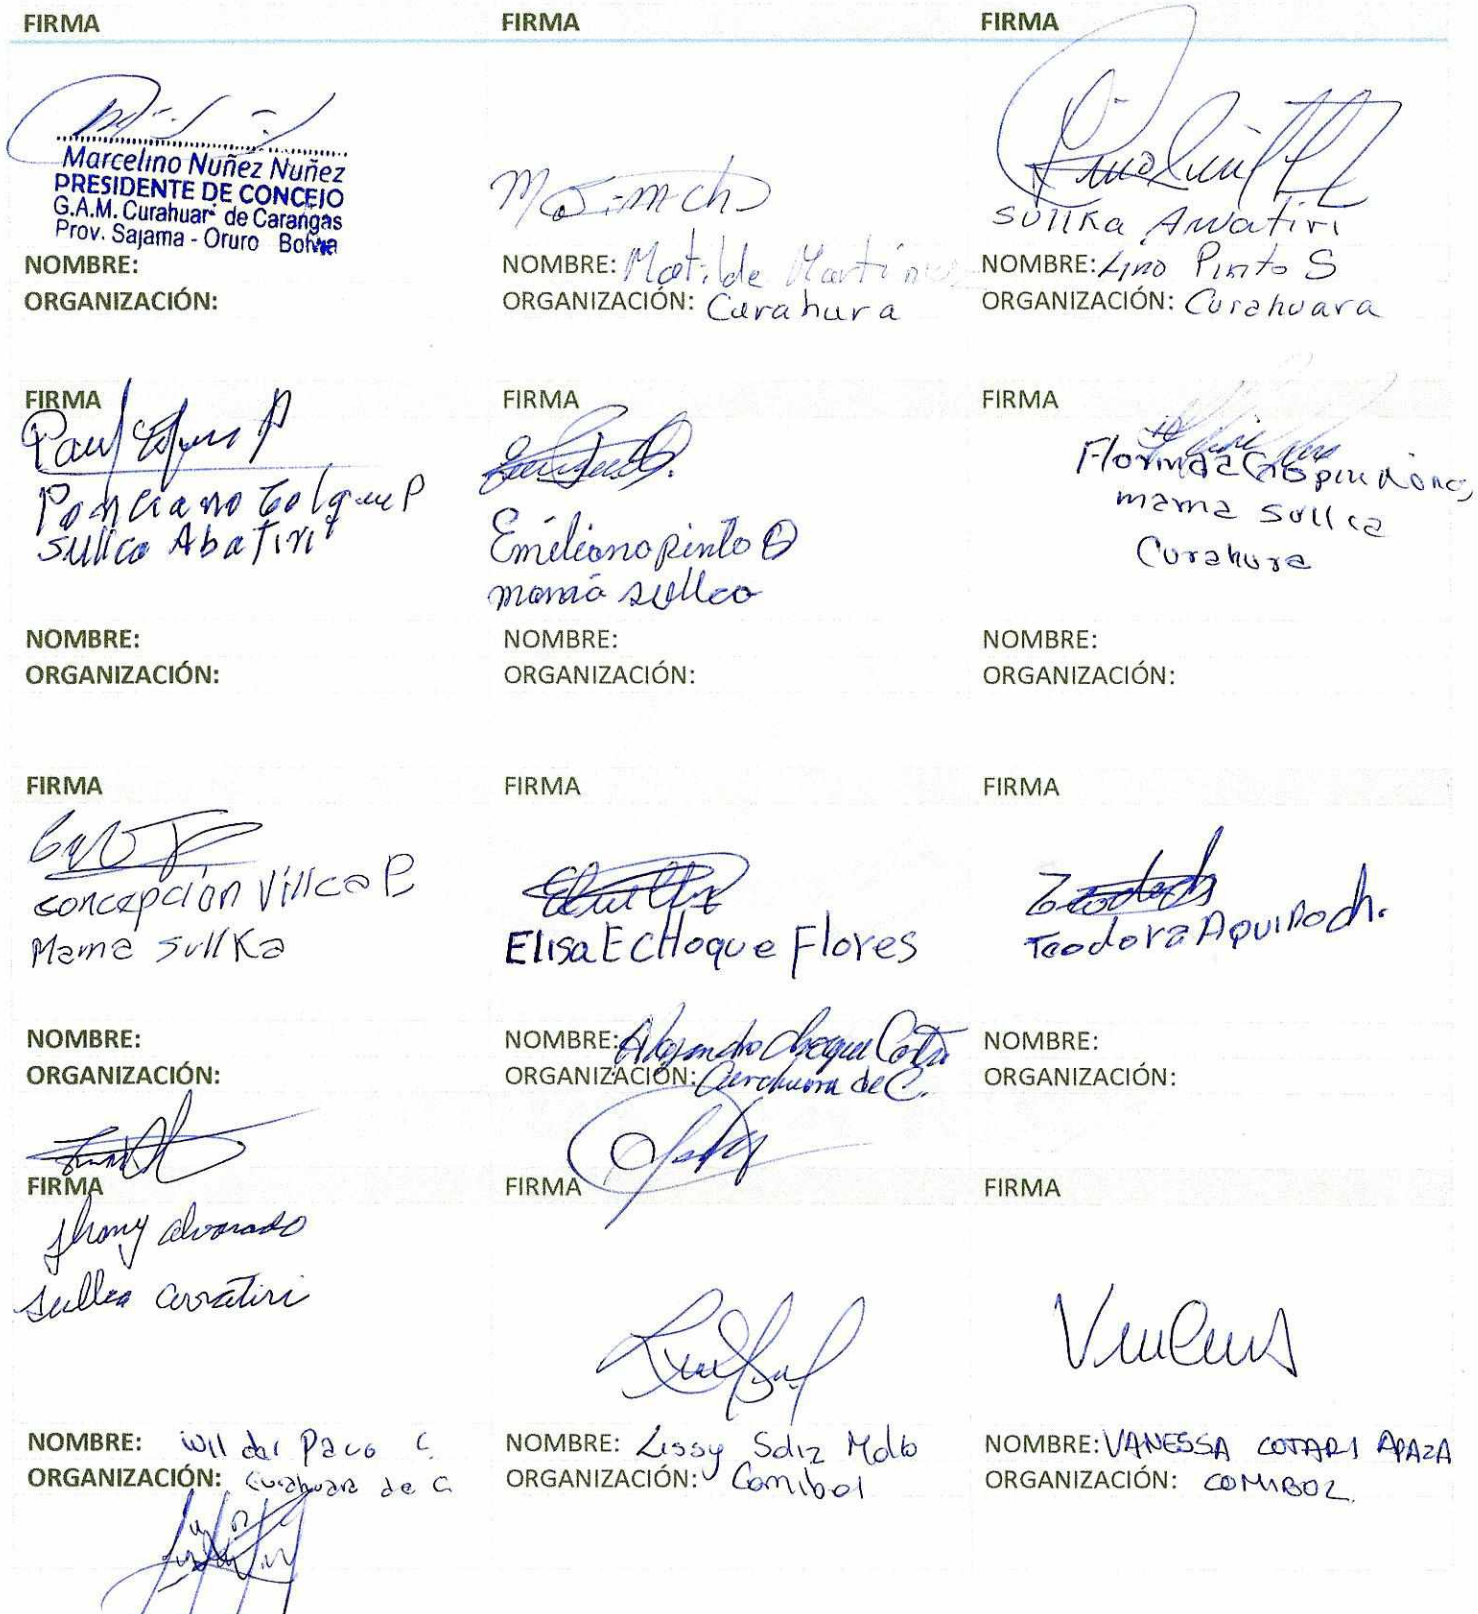 FIRMA
FIRMA
FIRMA
Marcelino Nuñez Nuñez
PRESIDENTE DE CONCEJO
G.A.M. Curahuara de Carangas
Prov. Sajama - Oruro Bolivia
NOMBRE:
ORGANIZACIÓN:
NOMBRE: Matilde Martinez
ORGANIZACIÓN: Curahura
Sullka Awatiri
NOMBRE: Lino Pinto S
ORGANIZACIÓN: Curahuara
FIRMA
Ponciano Colque P
Sullca Abatiri
NOMBRE:
ORGANIZACIÓN:
FIRMA
Emiliano pinto
mama sullca
NOMBRE:
ORGANIZACIÓN:
FIRMA
Florinda Crispin
mama sullca
Curahura
NOMBRE:
ORGANIZACIÓN:
FIRMA
concepción Villca P
Mama Sullka
NOMBRE:
ORGANIZACIÓN:
FIRMA
Elisa E CHoque Flores
NOMBRE: Alejandro Choque
ORGANIZACIÓN: Curahuara de C.
FIRMA
Teodora Aquino ch.
NOMBRE:
ORGANIZACIÓN:
FIRMA
Jhony alvarado
sullca awatiri
NOMBRE: Wilder Paco C
ORGANIZACIÓN: Curahuara de C
FIRMA
NOMBRE: Lissy Saliz
ORGANIZACIÓN: Comibol
FIRMA
NOMBRE: VANESSA COTARI APAZA
ORGANIZACIÓN: COMIBOL